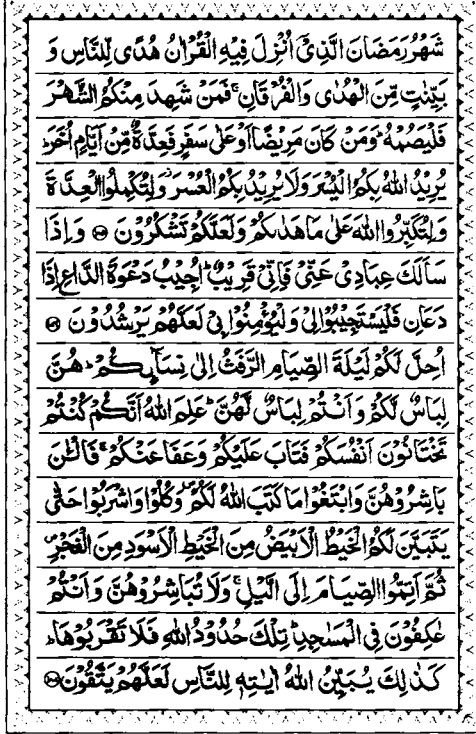 شَهْرُ رَمَضَانَ الَّذِیْۤ اُنْزِلَ فِیْهِ الْقُرْاٰنُ هُدًی لِّلنَّاسِ وَ
بَیِّنٰتٍ مِّنَ الْهُدٰی وَالْفُرْقَانِ ۚ فَمَنْ شَهِدَ مِنْكُمُ الشَّهْرَ
فَلْیَصُمْهُ ؕ وَمَنْ كَانَ مَرِیْضًا اَوْ عَلٰی سَفَرٍ فَعِدَّةٌ مِّنْ اَیَّامٍ اُخَرَ ؕ
یُرِیْدُ اللّٰهُ بِكُمُ الْیُسْرَ وَلَا یُرِیْدُ بِكُمُ الْعُسْرَ ۫ وَلِتُكْمِلُوا الْعِدَّةَ
وَلِتُكَبِّرُوا اللّٰهَ عَلٰی مَا هَدٰىكُمْ وَلَعَلَّكُمْ تَشْكُرُوْنَ ۝ وَاِذَا
سَاَلَكَ عِبَادِیْ عَنِّیْ فَاِنِّیْ قَرِیْبٌ ؕ اُجِیْبُ دَعْوَةَ الدَّاعِ اِذَا
دَعَانِ فَلْیَسْتَجِیْبُوْا لِیْ وَلْیُؤْمِنُوْا بِیْ لَعَلَّهُمْ یَرْشُدُوْنَ ۝
اُحِلَّ لَكُمْ لَیْلَةَ الصِّیَامِ الرَّفَثُ اِلٰی نِسَآىِٕكُمْ ؕ هُنَّ
لِبَاسٌ لَّكُمْ وَاَنْتُمْ لِبَاسٌ لَّهُنَّ ؕ عَلِمَ اللّٰهُ اَنَّكُمْ كُنْتُمْ
تَخْتَانُوْنَ اَنْفُسَكُمْ فَتَابَ عَلَیْكُمْ وَعَفَا عَنْكُمْ ۚ فَالْـٰٔنَ
بَاشِرُوْهُنَّ وَابْتَغُوْا مَا كَتَبَ اللّٰهُ لَكُمْ ۪ وَكُلُوْا وَاشْرَبُوْا حَتّٰی
یَتَبَیَّنَ لَكُمُ الْخَیْطُ الْاَبْیَضُ مِنَ الْخَیْطِ الْاَسْوَدِ مِنَ الْفَجْرِ ۪
ثُمَّ اَتِمُّوا الصِّیَامَ اِلَی الَّیْلِ ۚ وَلَا تُبَاشِرُوْهُنَّ وَاَنْتُمْ
عٰكِفُوْنَ فِی الْمَسٰجِدِ ؕ تِلْكَ حُدُوْدُ اللّٰهِ فَلَا تَقْرَبُوْهَا ؕ
كَذٰلِكَ یُبَیِّنُ اللّٰهُ اٰیٰتِهٖ لِلنَّاسِ لَعَلَّهُمْ یَتَّقُوْنَ ۝